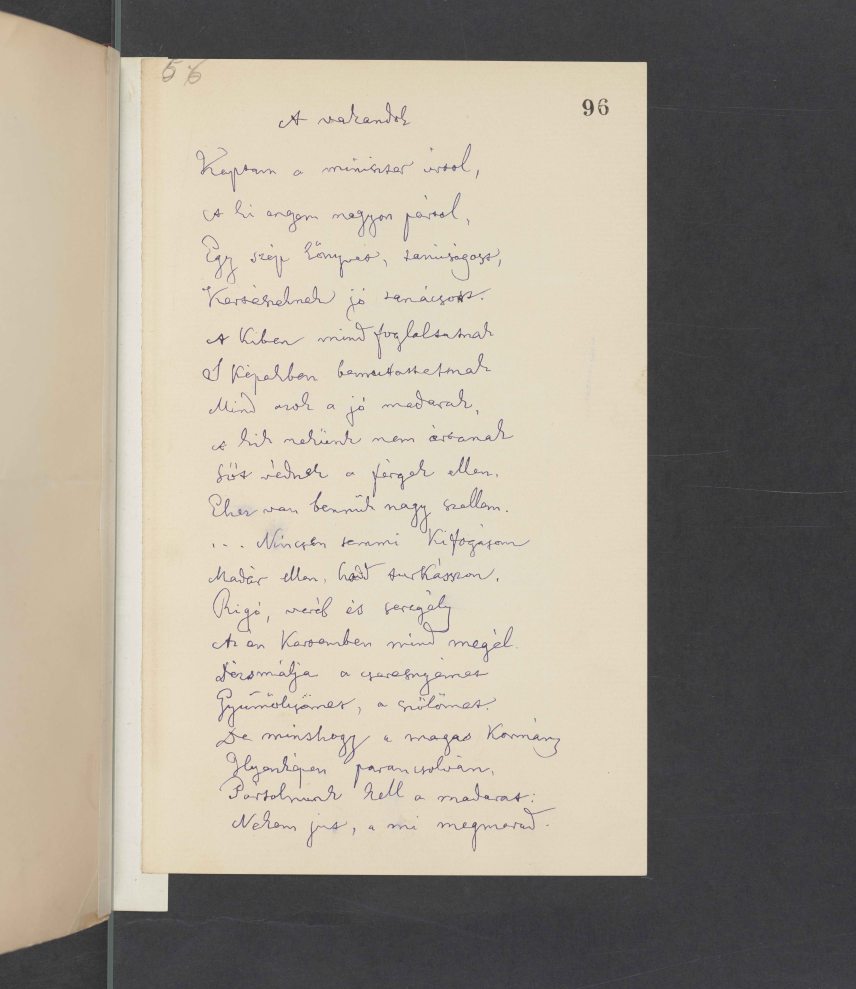 56
96
A vakandok
Kaptam a miniszter úrtol,
A ki engem nagyon pártol,
Egy szép könyvet, tanúságost,
Kertésznek jó tanácsost.
A Kiben mind foglaltatnak
S Képekben bemutattatnak
Mind azok a jó madarak,
A kik nekünk nem ártanak
Sőt védnek a férgek ellen.
Ehez van bennük nagy szellem.
... Nincsen semmi Kifogásom
Madár ellen, hadd turKásszon.
Rigó, veréb és seregély
Az én Kertemben mind megél.
Dézsmálja a cseresnyémet
Gyümölcsömet, a szőlőmet.
De minthogy a magas Kormány
Ilyenképen parancsolván,
Pártolnunk kell a madarat:
Nekem jut, a mi megmarad.